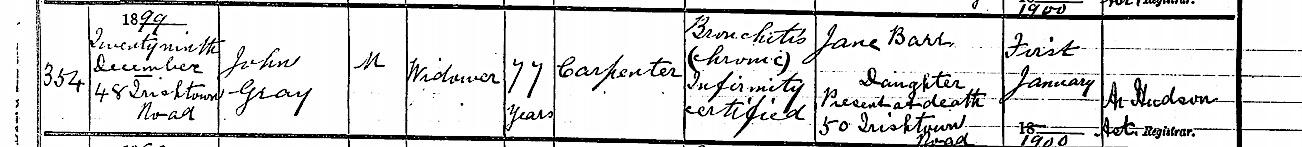 1900
Registrar.
354
1899
Twenty ninth
December
48 Irishtown
Road
John
Gray
M
Widower
77
Years
Carpenter
Bronchitis
(chronic)
Infirmity
certified
Jane Barr
Daughter
Present at death
50 Irishtown
Road
First
January
18
1900
Hudson
Act. Registrar.